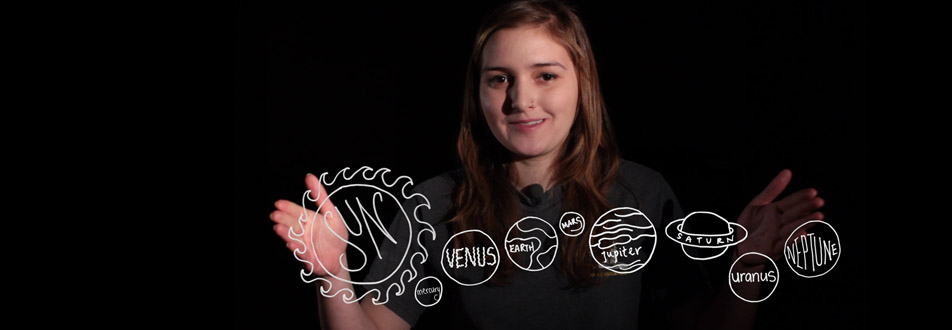 SUN
mercury
VENUS
EARTH
MARS
Jupiter
SATURN
uranus
NEPTUNE